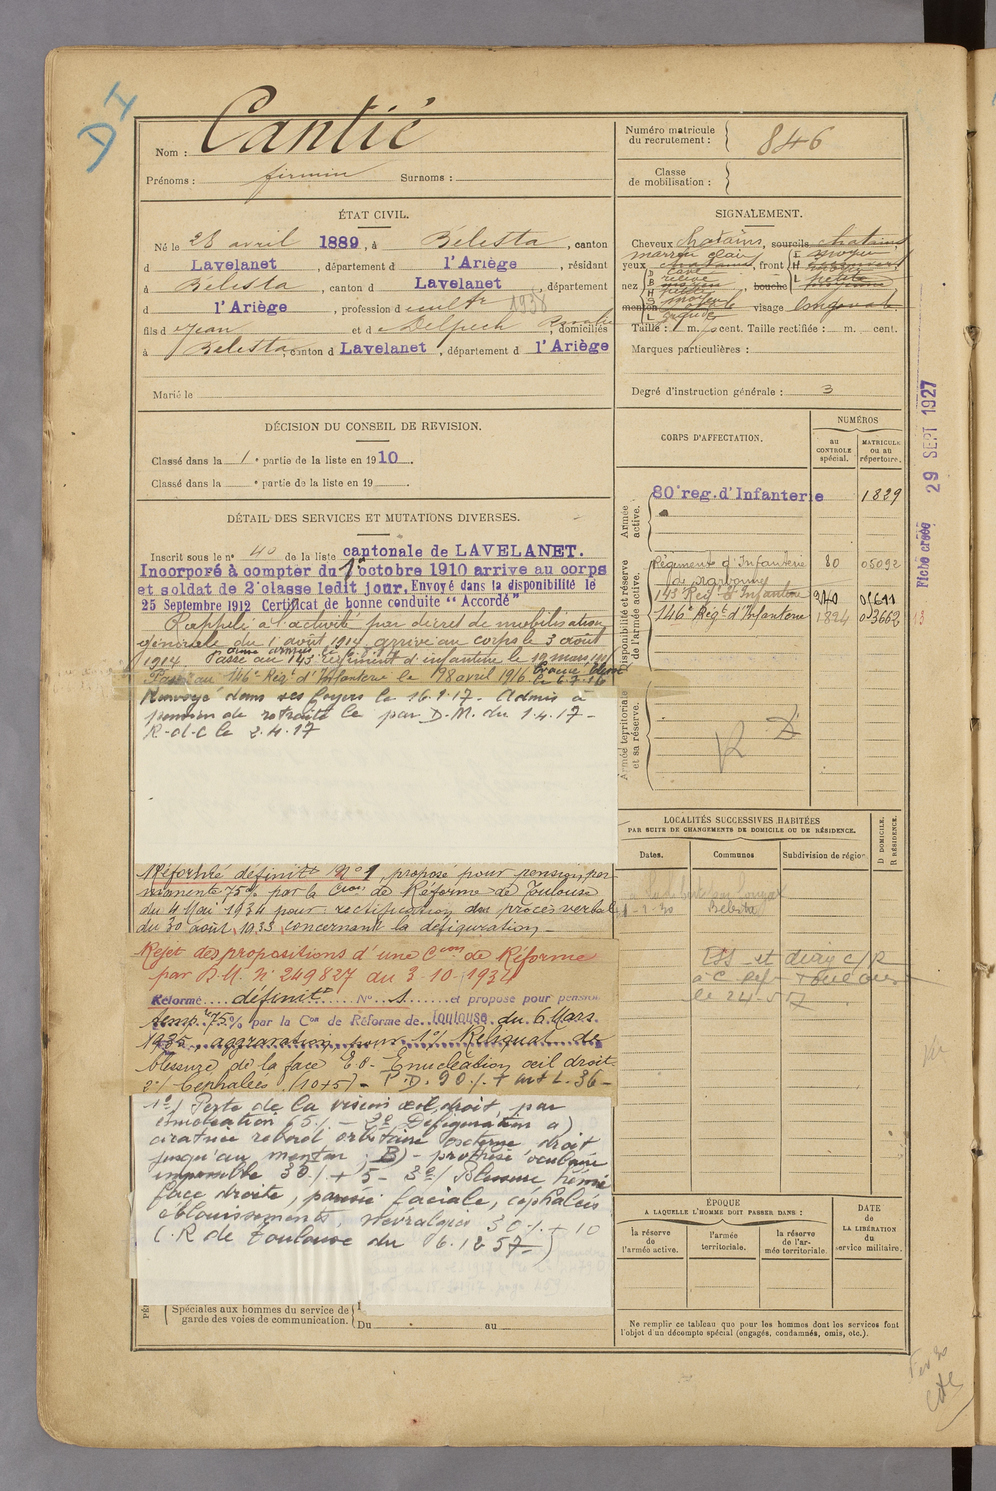 D H
Nom : Cantié
Prénoms : firmin Surnoms :
ÉTAT CIVIL.
Né le 28 avril 1889, à Bélesta, canton
d Lavelanet, département d l'Ariège, résidant
à Bélesta, canton d Lavelanet, département
d l'Ariège, profession d cultr 1938
fils d e Jean et d e Delpech Rosalie, domiciliés
à Bélesta, canton d Lavelanet, département d l'Ariège
Marié le
DÉCISION DU CONSEIL DE REVISION.
Classé dans la 1 e partie de la liste en 1910.
Classé dans la e partie de la liste en 19 .
DÉTAIL DES SERVICES ET MUTATIONS DIVERSES.
Inscrit sous le n° 40 de la liste cantonale de LAVELANET.
Incorporé à compter du 1 octobre 1910 arrive au corps
et soldat de 2e classe ledit jour. Envoyé dans la disponibilité le
25 Septembre 1912 Certificat de bonne conduite "Accordé"
Rappelé à l'activité par décret de mobilisation
générale du 1 août 1914, arrivé au corps le 3 août
1914. Passé au 143 régiment d'infanterie le 19 mars
Passé au 146e Régt d'Infanterie le 28 avril 1916
Renvoyé dans ses foyers le 16.1.17. Admis à
pension de retraite le par D.M. du 1.4.17 -
R-d-C le 2.4.17
Réformé définitt N° 1, proposé pour pension per-
manente 75% par la Cion de Réforme de Toulouse
du 4 Mai 1934 pour rectification du procès verbal
du 30 août 1933 concernant la défiguration -
Rejet des propositions d'une Con de Réforme
par D.M. N° 249827 du 3-10-1934
Réformé définitt N° 1 et proposé pour pension
temp. 75% par la Con de Réforme de Toulouse du 6 Mars
1935, aggravation, pour 1°/ Reliquat de
blessure de la face E.O. Enucléation œil droit
2°/ Céphalées (10+5) - P.D. 90%
1°/ Perte de la vision œil droit, par
énucléation 65% - 2° Défiguration a)
cicatrice rebord orbitaire externe droit
jusqu'au menton, B) - prothèse oculaire
impossible 30% + 5 - 3°/ Blessure hémi
face droite, parésie faciale, céphalées
éblouissements, névralgies 30% + 10
(C.R de Toulouse du 6.12 57)
Spéciales aux hommes du service de
garde des voies de communication.
Du au
Numéro matricule
du recrutement : 846
Classe
de mobilisation :
SIGNALEMENT.
Cheveux chatains, sourcils chatains
marron clair
yeux chatains, front
nez , bouche
menton , visage
Taille : 1 m. cent. Taille rectifiée : m. cent.
Marques particulières :
Degré d'instruction générale : 3
CORPS D'AFFECTATION.
NUMÉROS
au CONTROLE spécial.
MATRICULE ou au répertoire.
Armée active.
80e reg. d'Infanterie 1829
Disponibilité et réserve de l'armée active.
Régiment d'Infanterie 80 05092
de Narbonne
143 Regt d'Infanterie
146e Régt d'Infanterie 1824 03662
Armée territoriale et sa réserve.
R D
29 SEPT 1927
Fiche créée
LOCALITÉS SUCCESSIVES HABITÉES
PAR SUITE DE CHANGEMENTS DE DOMICILE OU DE RÉSIDENCE.
Dates. Communes Subdivision de région
D DOMICILE. R RÉSIDENCE.
Bélesta
le 24-5 57
ÉPOQUE
A LAQUELLE L'HOMME DOIT PASSER DANS :
la réserve de l'armée active.
l'armée territoriale.
la réserve de l'armée territoriale
DATE de LA LIBÉRATION du service militaire.
Ne remplir ce tableau que pour les hommes dont les services font
l'objet d'un décompte spécial (engagés, condamnés, omis, etc.).